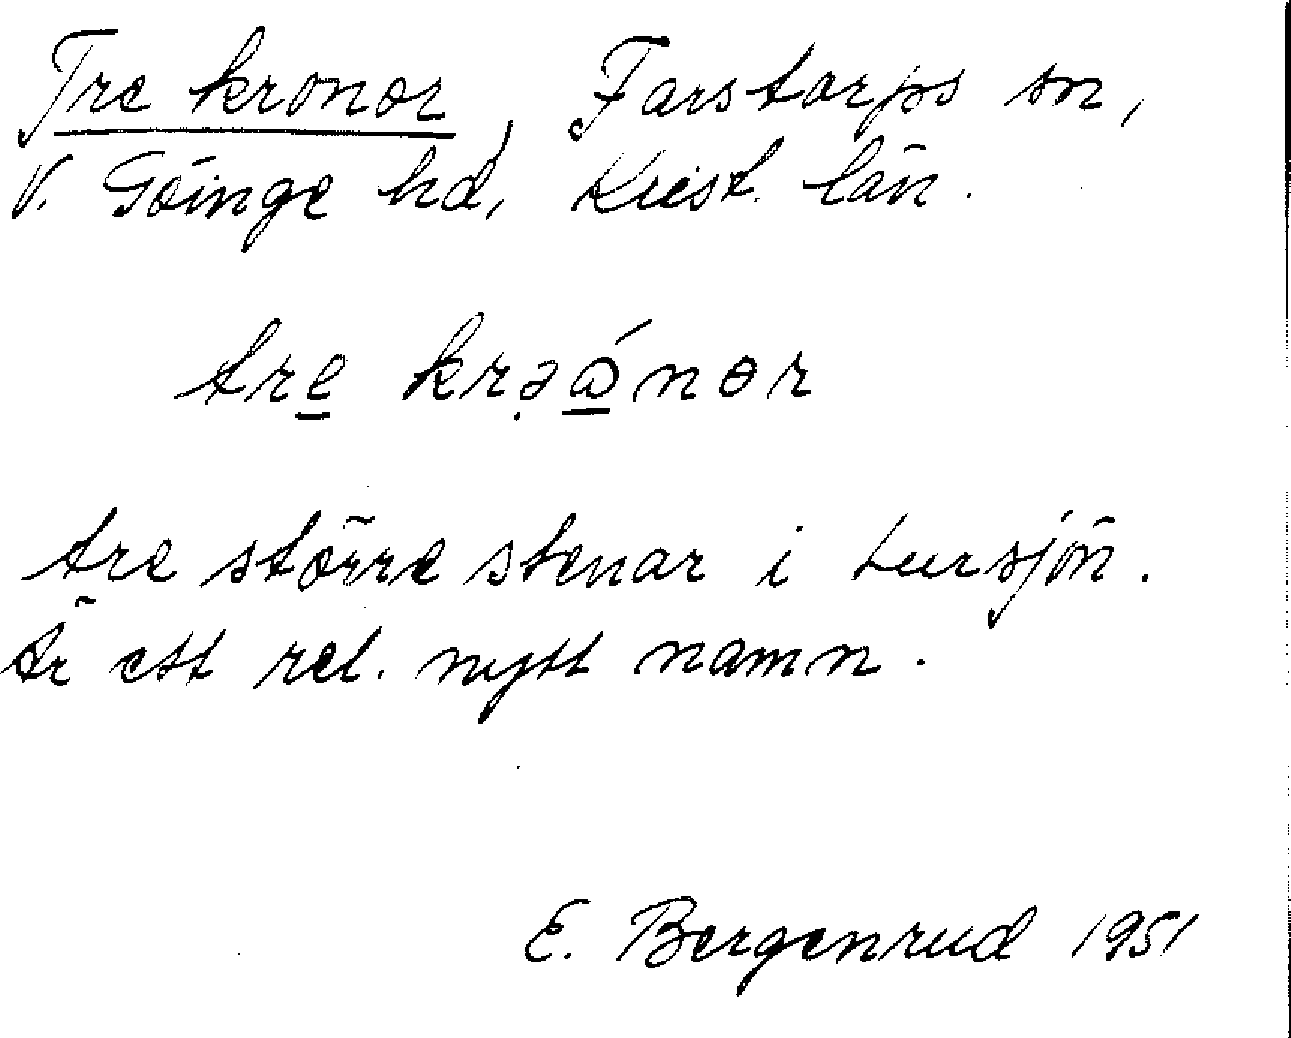 Tre kronor, Farstorps sn,
V. Göinge hd, Krist. län.
tre krə̣ώnɵr
tre större stenar i Lursjön.
Är ett rel. nytt namn.
E. Bergenrud 1951